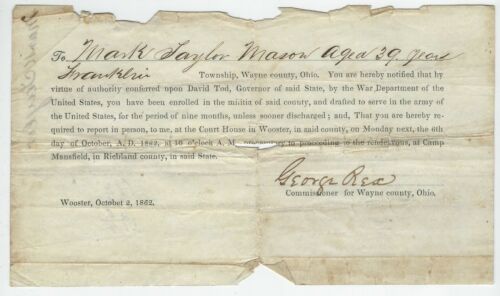 To Mark Taylor Mason Aged 39 years
Franklin Township, Wayne county, Ohio. You are hereby notified that by
virtue of authority conferred upon David Tod, Governor of said State, by the War Department of the
United States, you have been enrolled in the militia of said county, and drafted to serve in the army
of the United States, for the period of nine months, unless sooner discharged; and, That you are hereby re-
quired to report in person, to me, at the Court House in Wooster, in said county, on Monday next, the 6th
day of October, A. D. 1862, at 10 o'clock A. M., preparatory to proceeding to the rendezvous, at Camp
Mansfield, in Richland county, in said State.
George Rex
Commissioner for Wayne county, Ohio.
Wooster, October 2, 1862.